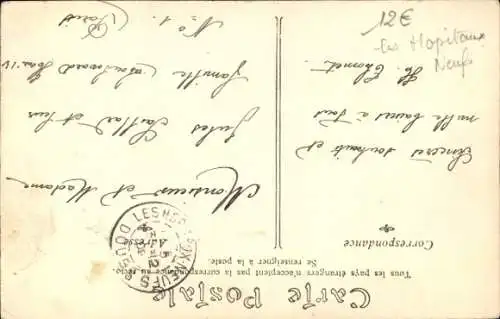 CARTE POSTALE
Tous les pays étrangers n'acceptent pas la correspondance au recto.
Se renseigner à la poste.
Correspondance
Adresse
LES HOPITAUX-NEUFS
DOUBS
Sincères souhaits et
mille baisers à tous
Monsieur et Madame
Jules et leur
famille Boulevard Henri IV
No 1.
Paris
12€
Les Hopitaux
Neufs